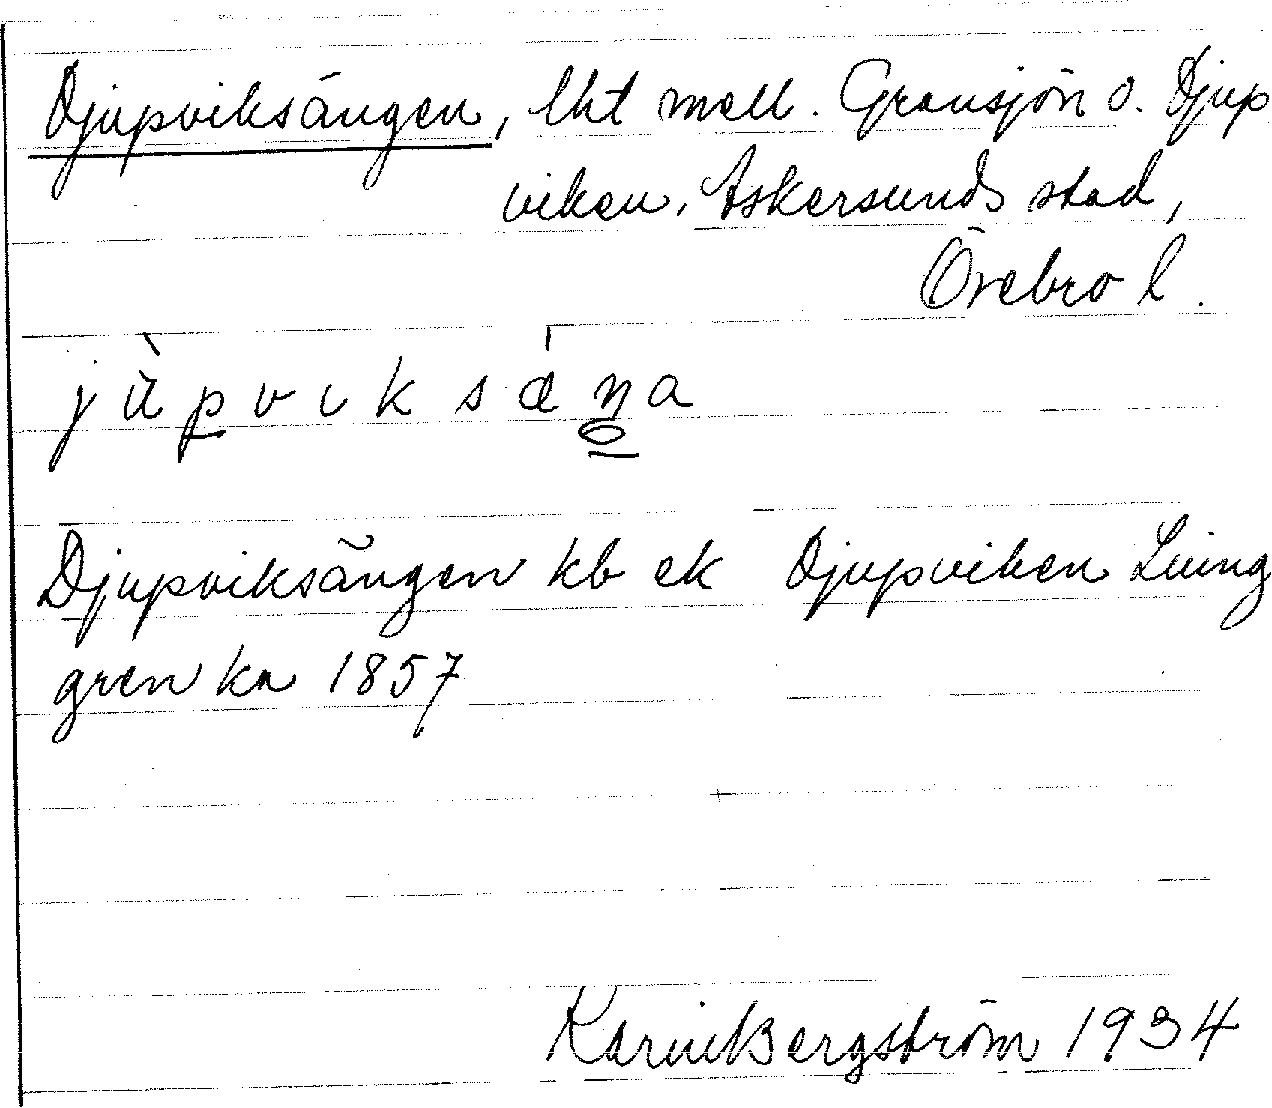 Djupviksängen, lht mell. Gransjön o. Djup
viken, Askersunds stad,
Örebro l.
jùpvıksæŋa
Djupviksängen kb ek Djupviken Ljung
gren ka 1857
Karin Bergström 1934